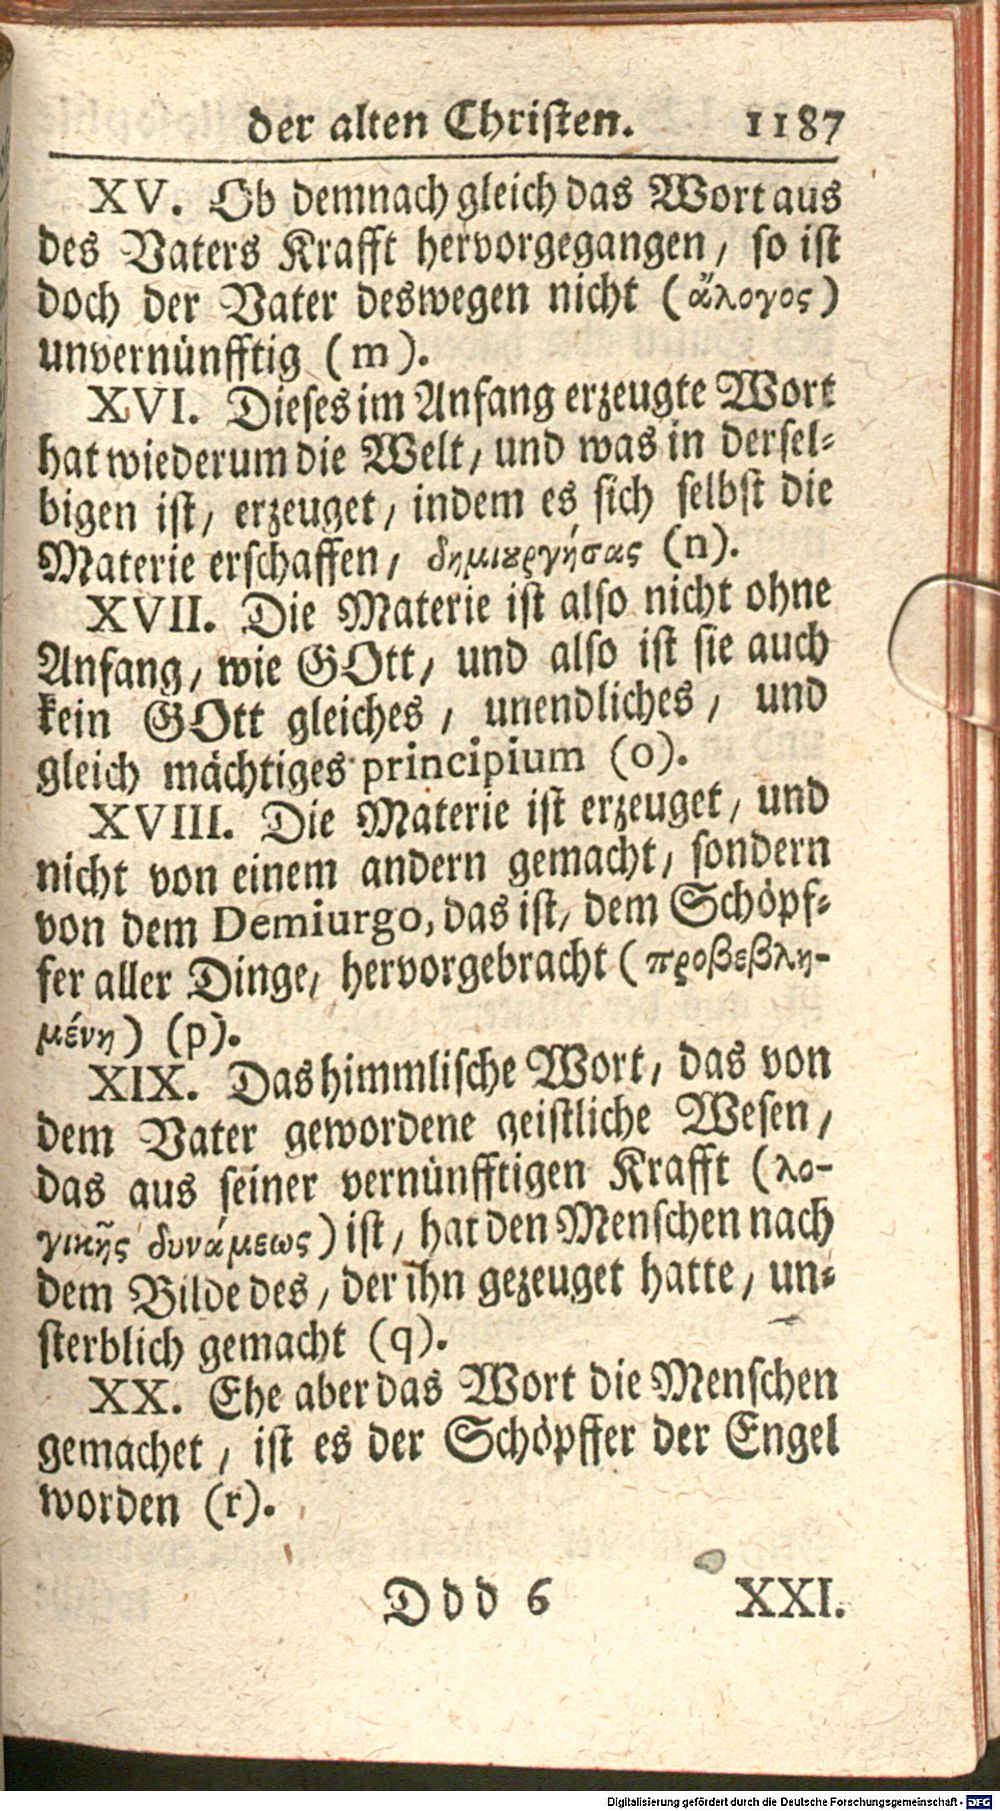 der alten Christen. 1187
XV. Ob demnach gleich das Wort aus
des Vaters Krafft hervorgegangen, so ist
doch der Vater deswegen nicht (ἄλογος)
unvernünfftig (m).
XVI. Dieses im Anfang erzeugte Wort
hat wiederum die Welt, und was in dersel-
bigen ist, erzeuget, indem es sich selbst die
Materie erschaffen, δημιȣργήσας (n).
XVII. Die Materie ist also nicht ohne
Anfang, wie GOtt, und also ist sie auch
kein GOtt gleiches, unendliches, und
gleich mächtiges principium (o).
XVIII. Die Materie ist erzeuget, und
nicht von einem andern gemacht, sondern
von dem Demiurgo, das ist, dem Schöpf-
fer aller Dinge, hervorgebracht (προβεβλη-
μένη) (p).
XIX. Das himmlische Wort, das von
dem Vater gewordene geistliche Wesen,
das aus seiner vernünfftigen Krafft (λο-
γικῆς δυνάμεως) ist, hat den Menschen nach
dem Bilde des, der ihn gezeuget hatte, un-
sterblich gemacht (q).
XX. Ehe aber das Wort die Menschen
gemachet, ist es der Schöpffer der Engel
worden (r).
Ddd 6 XXI.
Digitalisierung gefördert durch die Deutsche Forschungsgemeinschaft - DFG